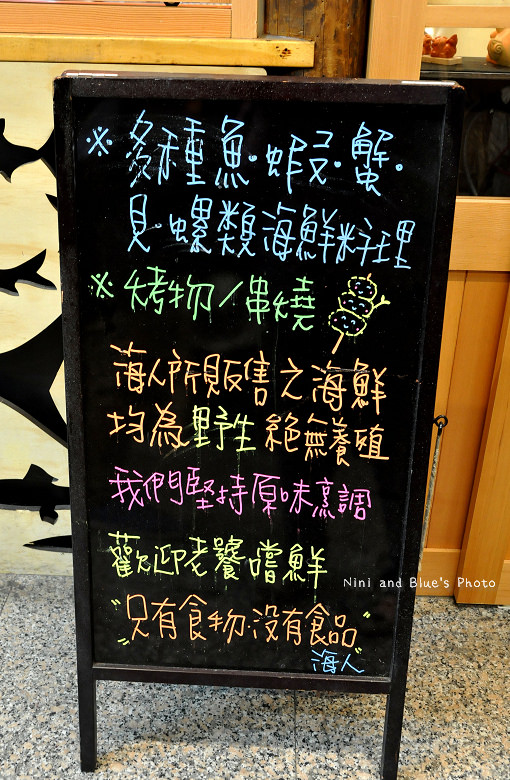 ※多種魚.蝦.蟹.
貝.螺類海鮮料理
※烤物/串燒
海人所販售之海鮮
均為野生絕無養殖
我們堅持原味烹調
歡迎老饕嚐鮮
"只有食物.沒有食品"
海人
Nini and Blue's Photo